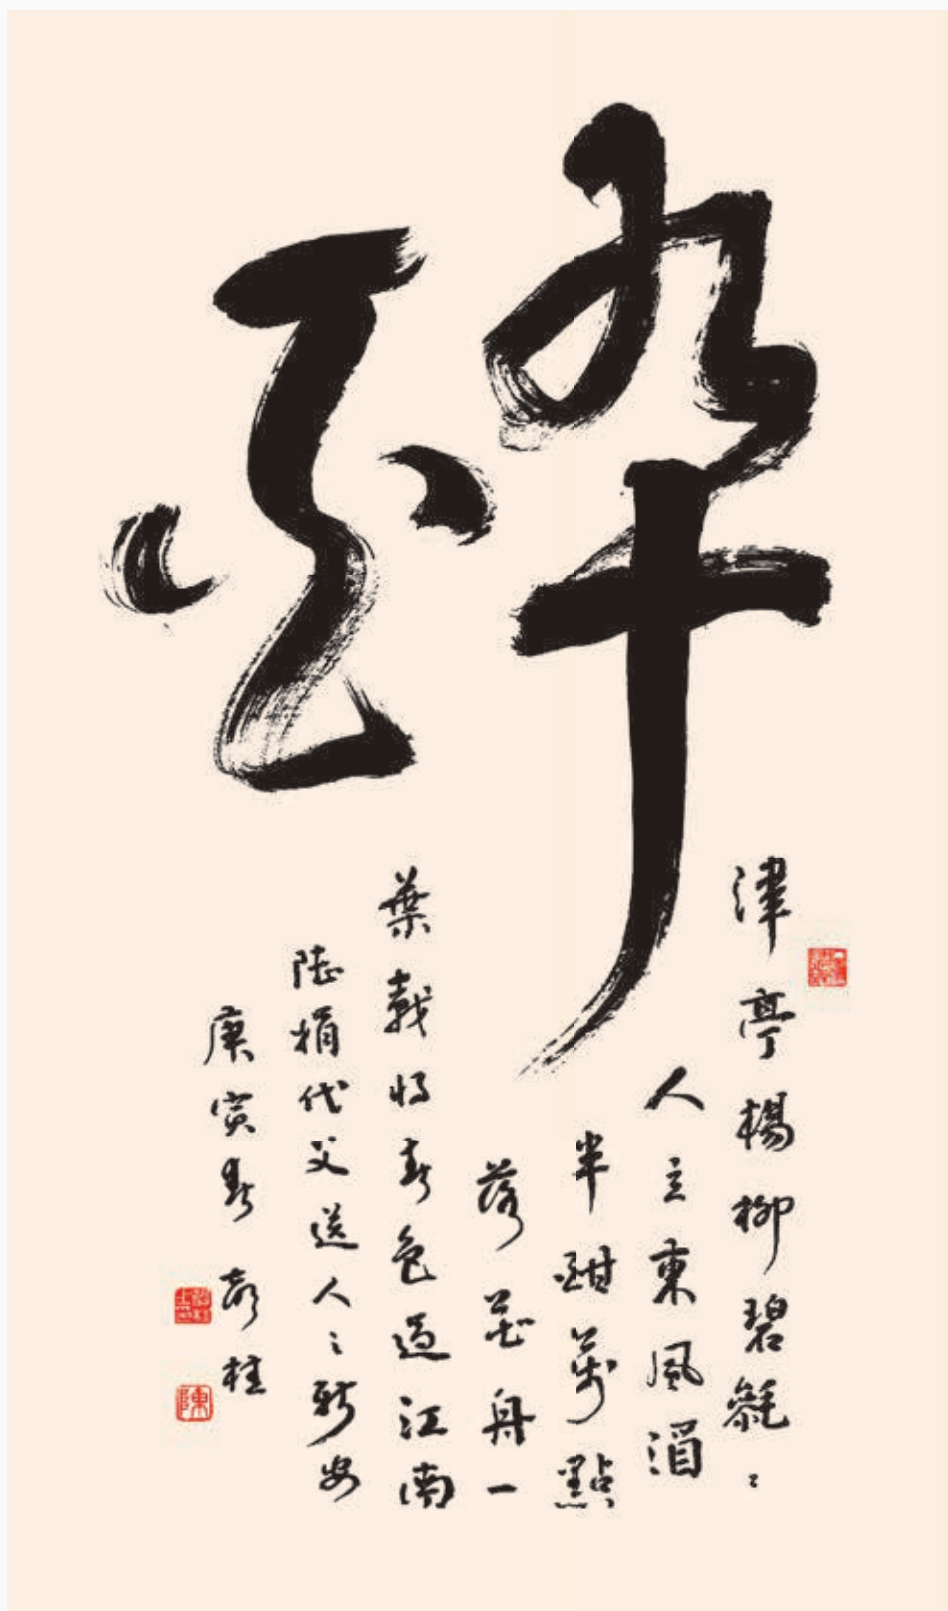 醉
津亭楊柳碧毿〻
人立東風酒
半酣萬點
落花舟一
葉載將春色過江南
陸娟代父送人之新安
庚寅春桂
陳